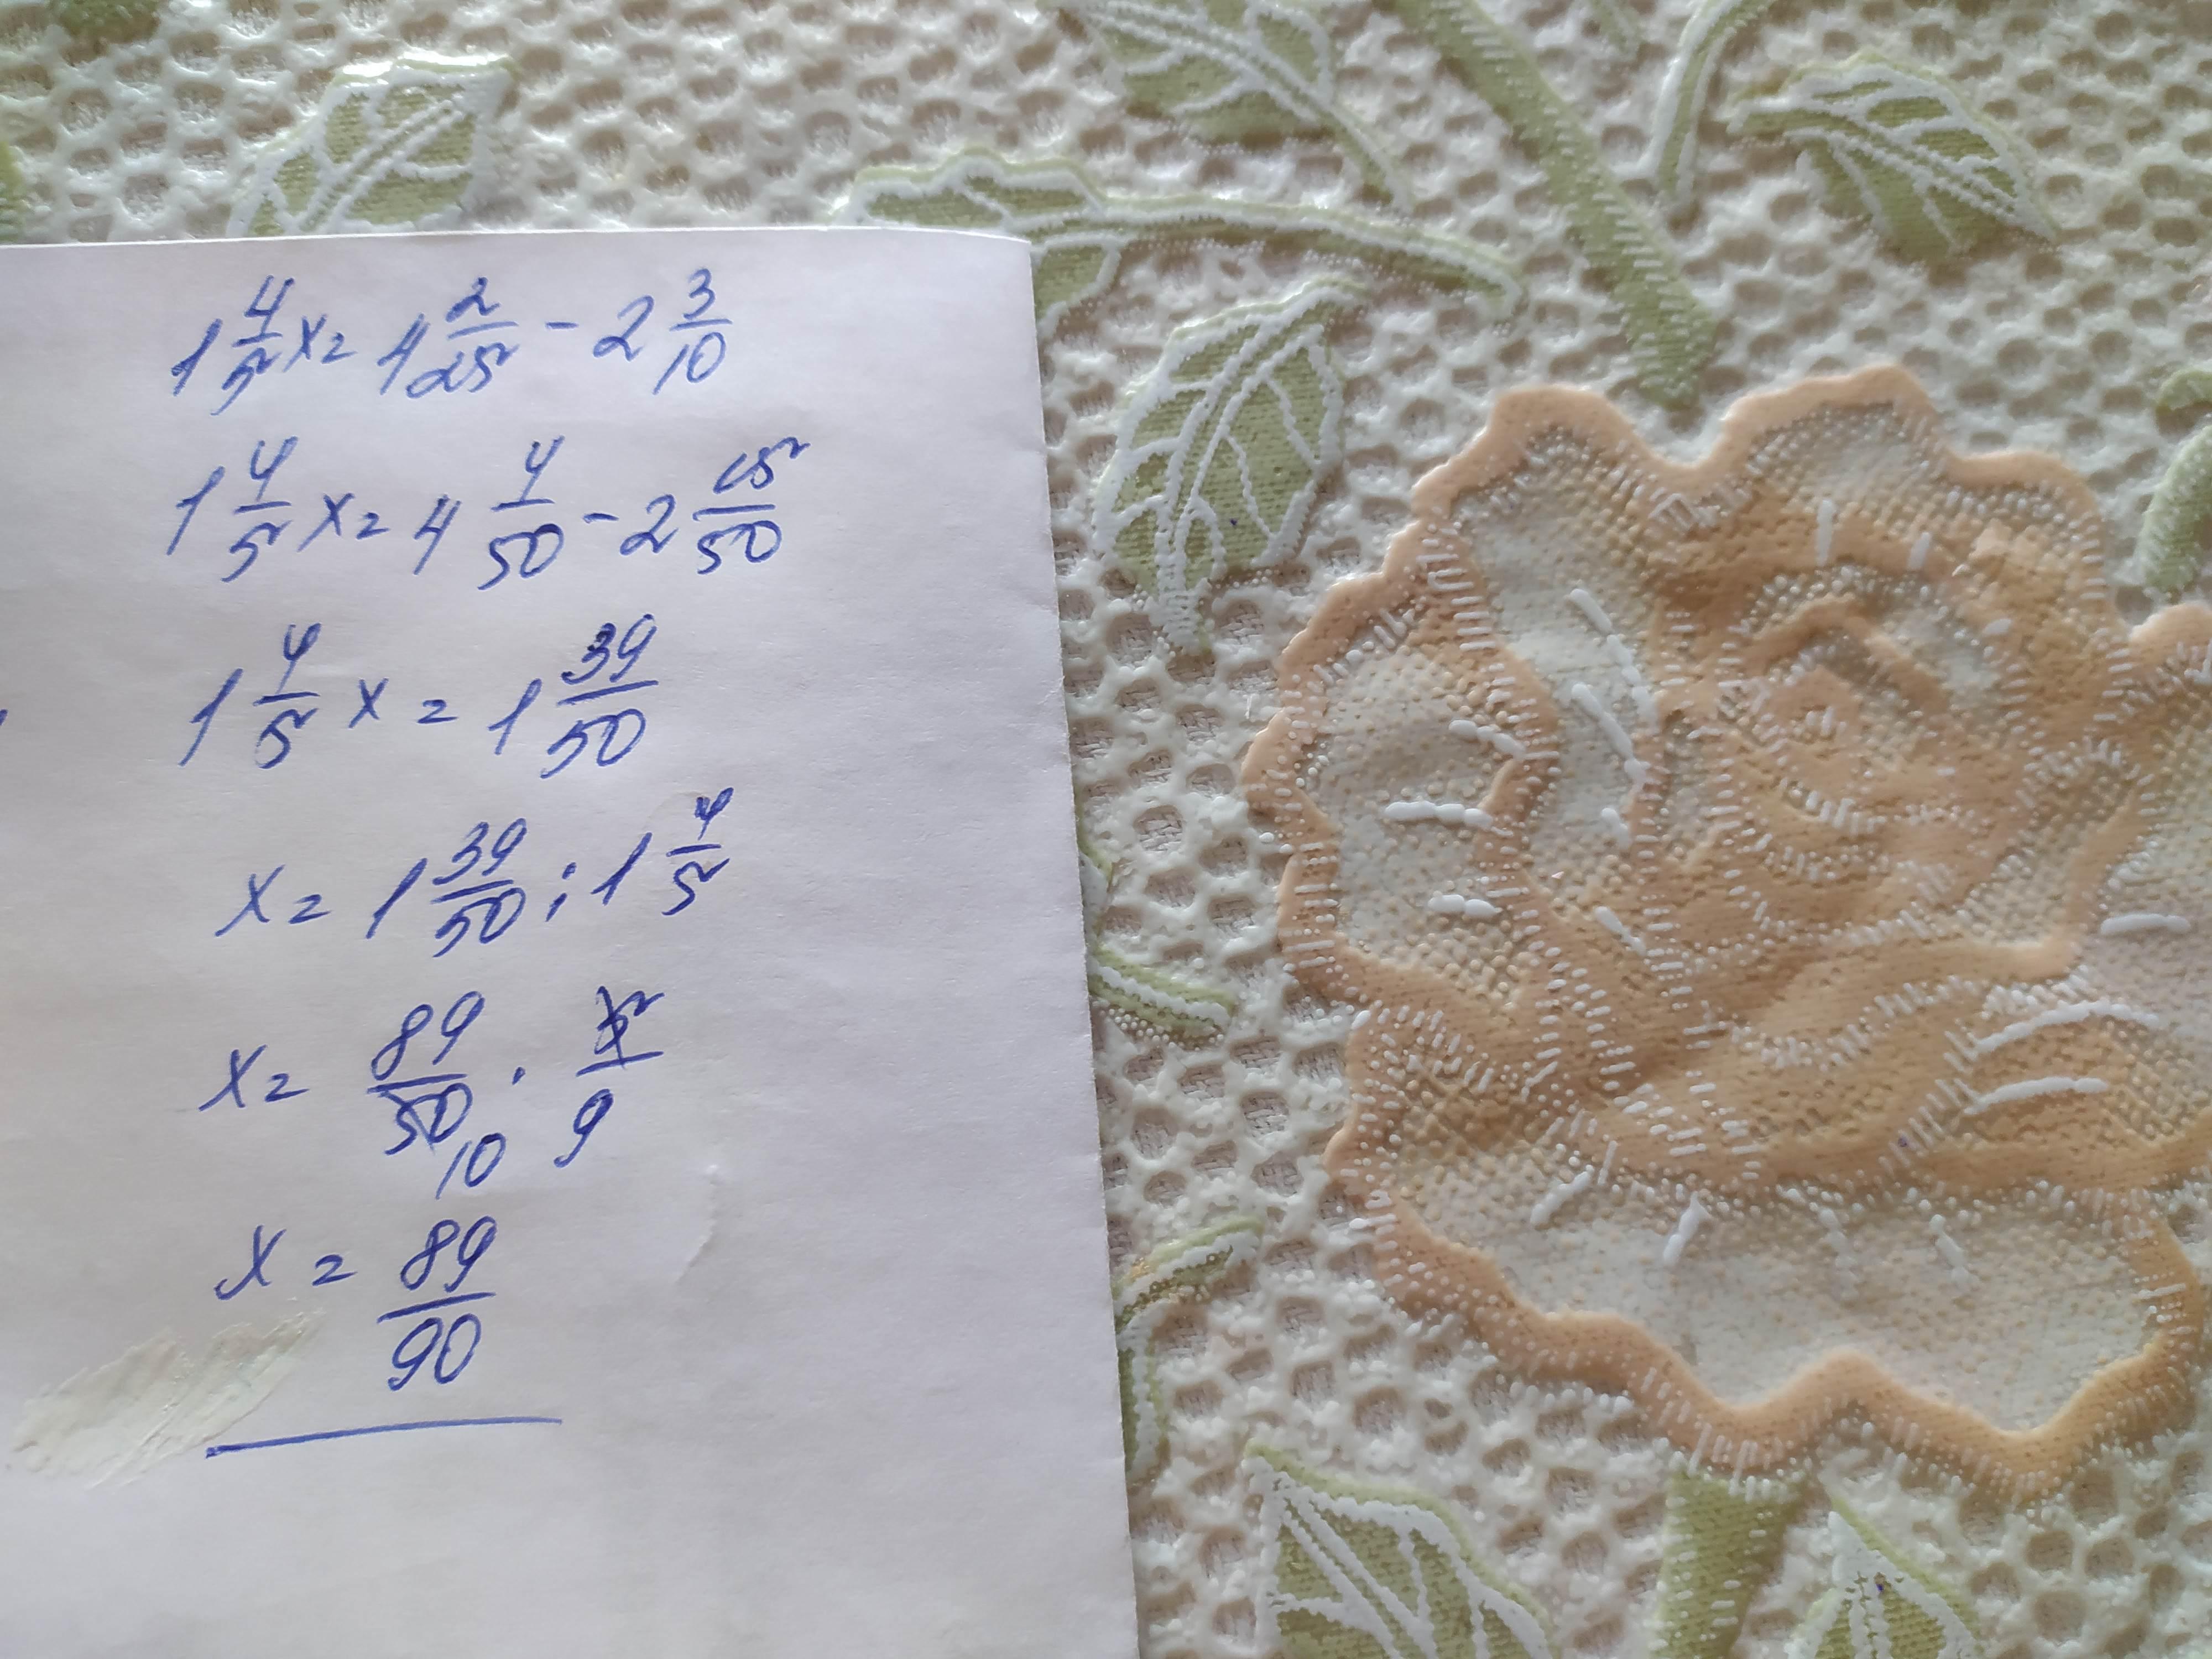 1 4/5 x = 4 2/25 - 2 3/10
1 4/5 x = 4 4/50 - 2 15/50
1 4/5 x = 1 39/50
x = 1 39/50 : 1 4/5
x = 89/50 10 · 5/9
x = 89/90